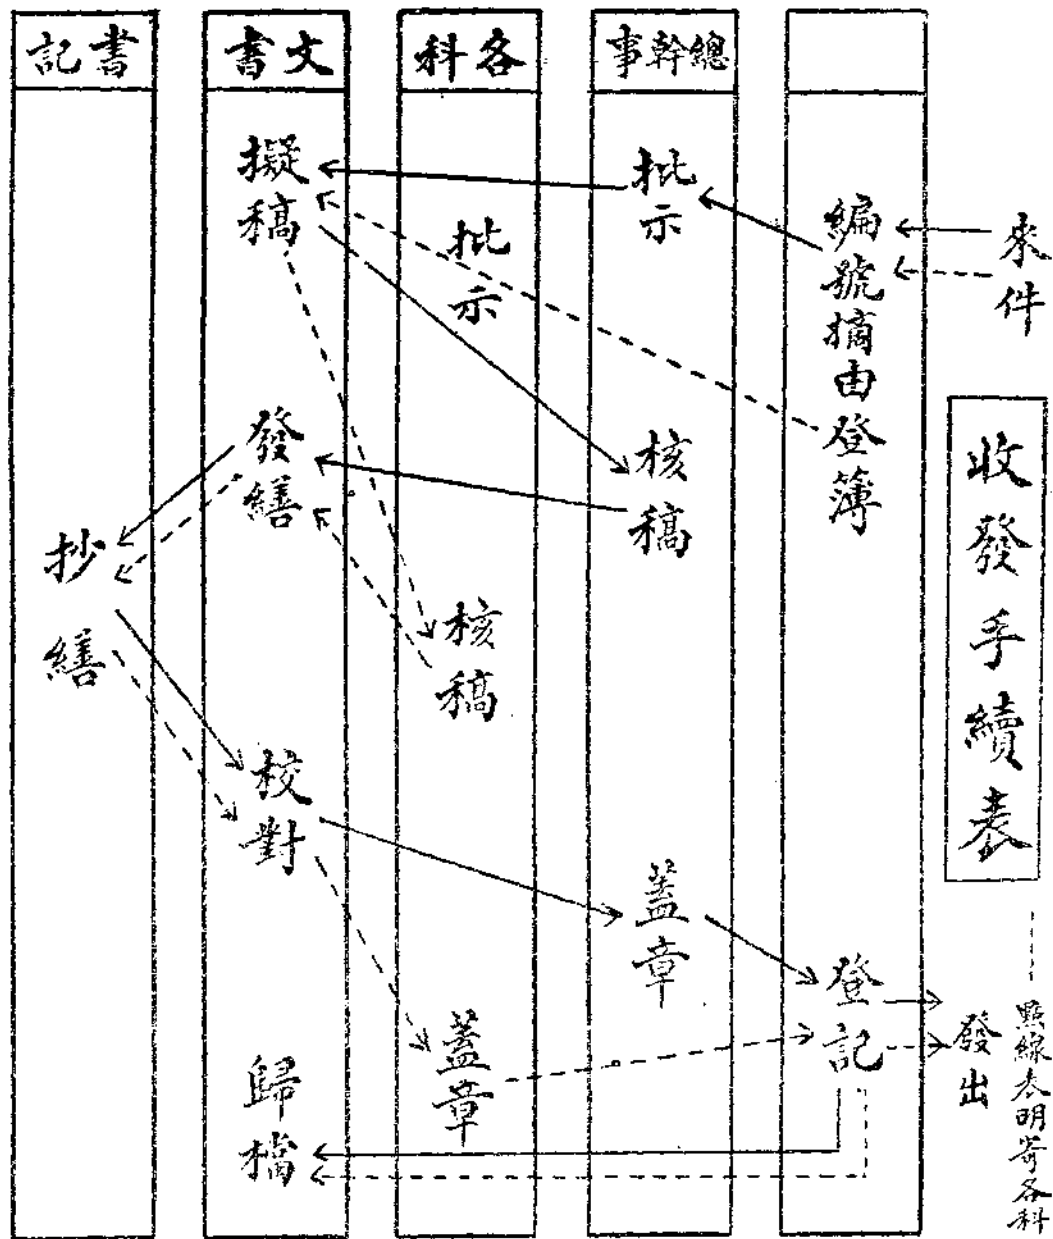 收發手續表
點線表明寄各科
來件
發出
編號摘由登簿
登記
總幹事
批示
核稿
蓋章
各科
批示
核稿
蓋章
文書
擬稿
發繕
校對
歸檔
書記
抄繕